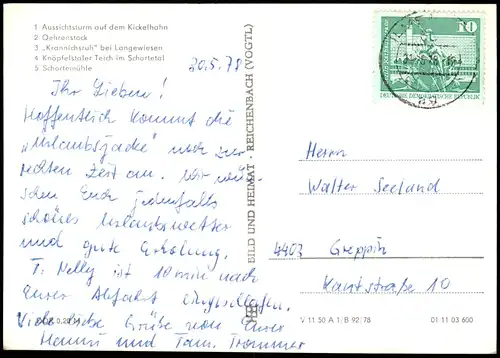 1 Aussichtsturm auf dem Kickelhahn
2 Oehrenstock
3 „Krannichsruh" bei Langewiesen
4 Knöpfelstaler Teich im Schortetal
5 Schortemühle
30.5.78
Ihr Lieben!
Hoffentlich kommt die
„Urlaubsjacke" noch zur
rechten Zeit an. Wir wün-
schen Euch jedenfalls
schönes Urlaubswetter
und gute Erholung.
T. Nelly ist 10 min nach
Eurer Abfahrt eingeflogen.
Viele liebe Grüße von Eurer
Hanni und Fam. Trommer
BILD UND HEIMAT · REICHENBACH (VOGTL)
10
DEUTSCHE DEMOKRATISCHE REPUBLIK
Herrn
Walter Seeland
4403 Greppin
Kantstraße 10
V 11 50 A 1/B 92/78 01 11 03 600